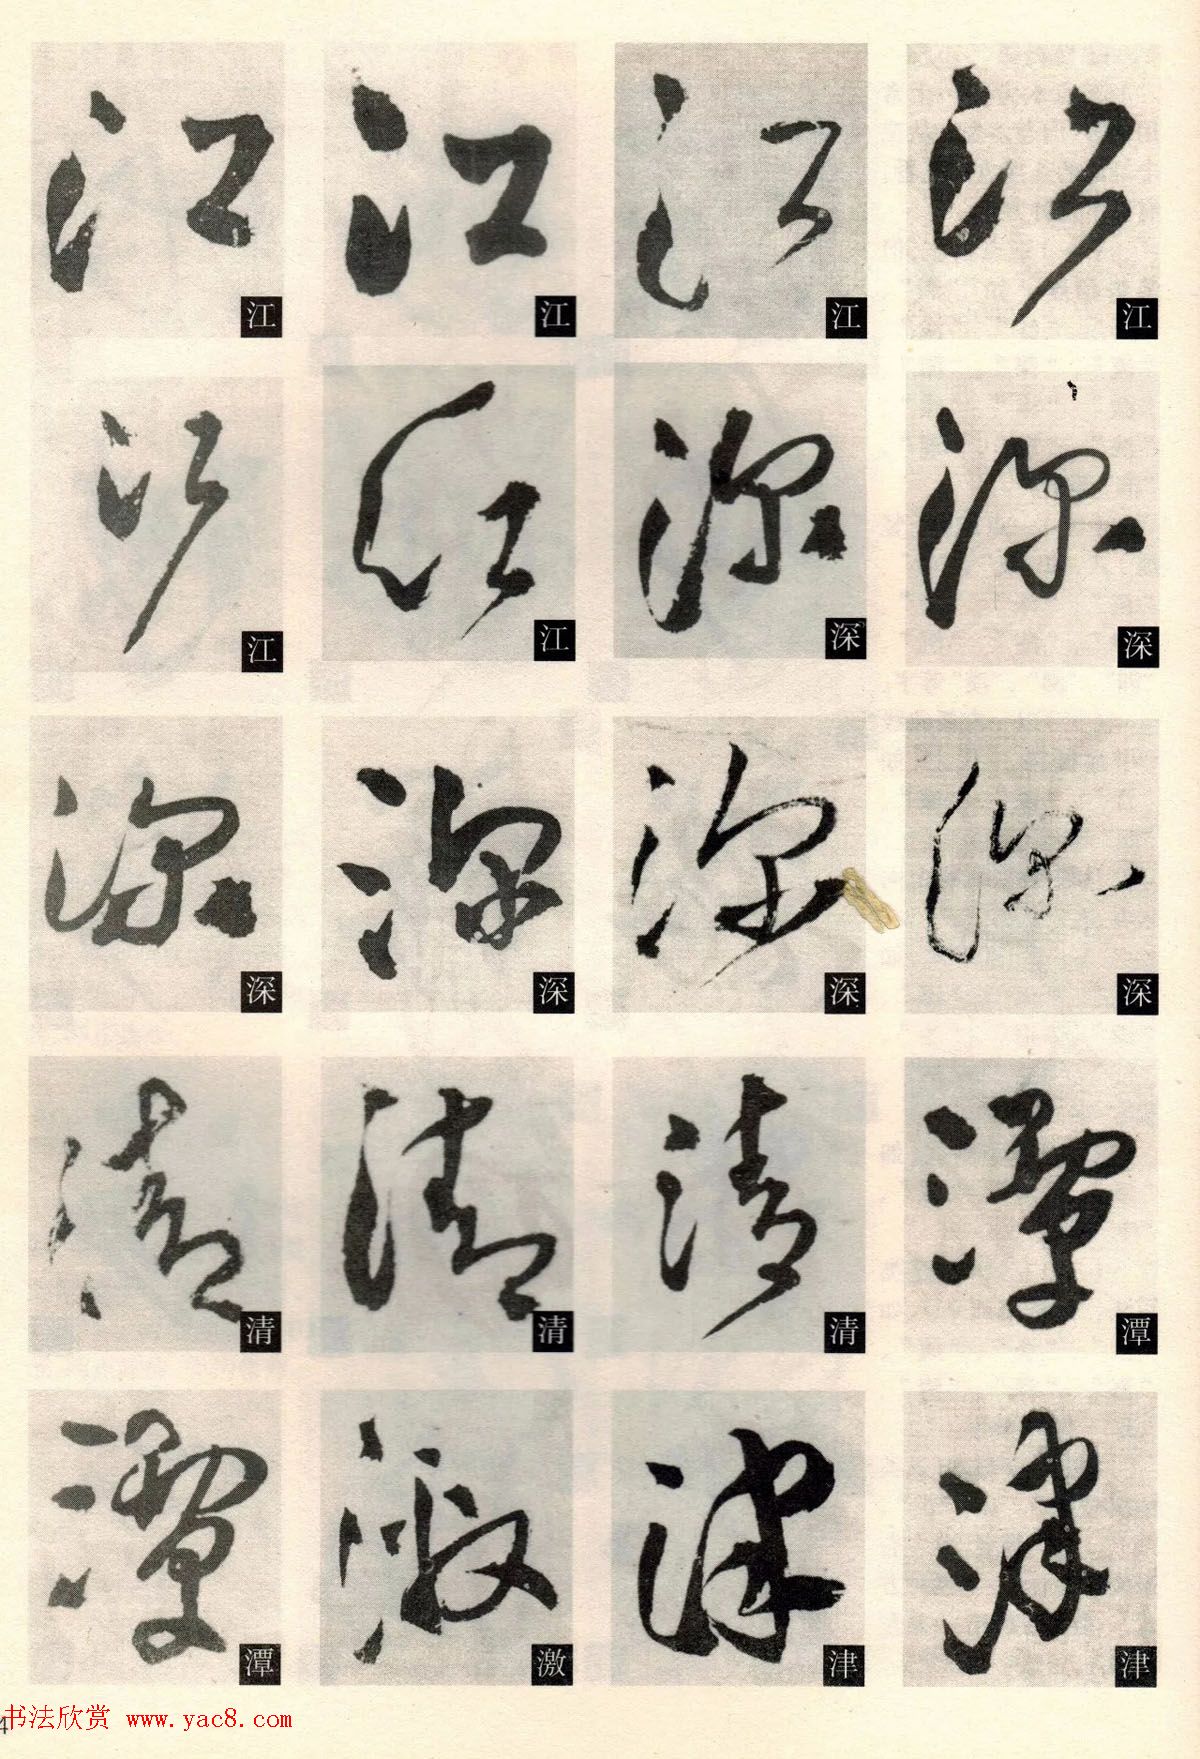 江 江 江 江
江 江 深 深
深 深 深 深
清 清 清 潭
潭 激 津 津
4
书法欣赏 www.yac8.com